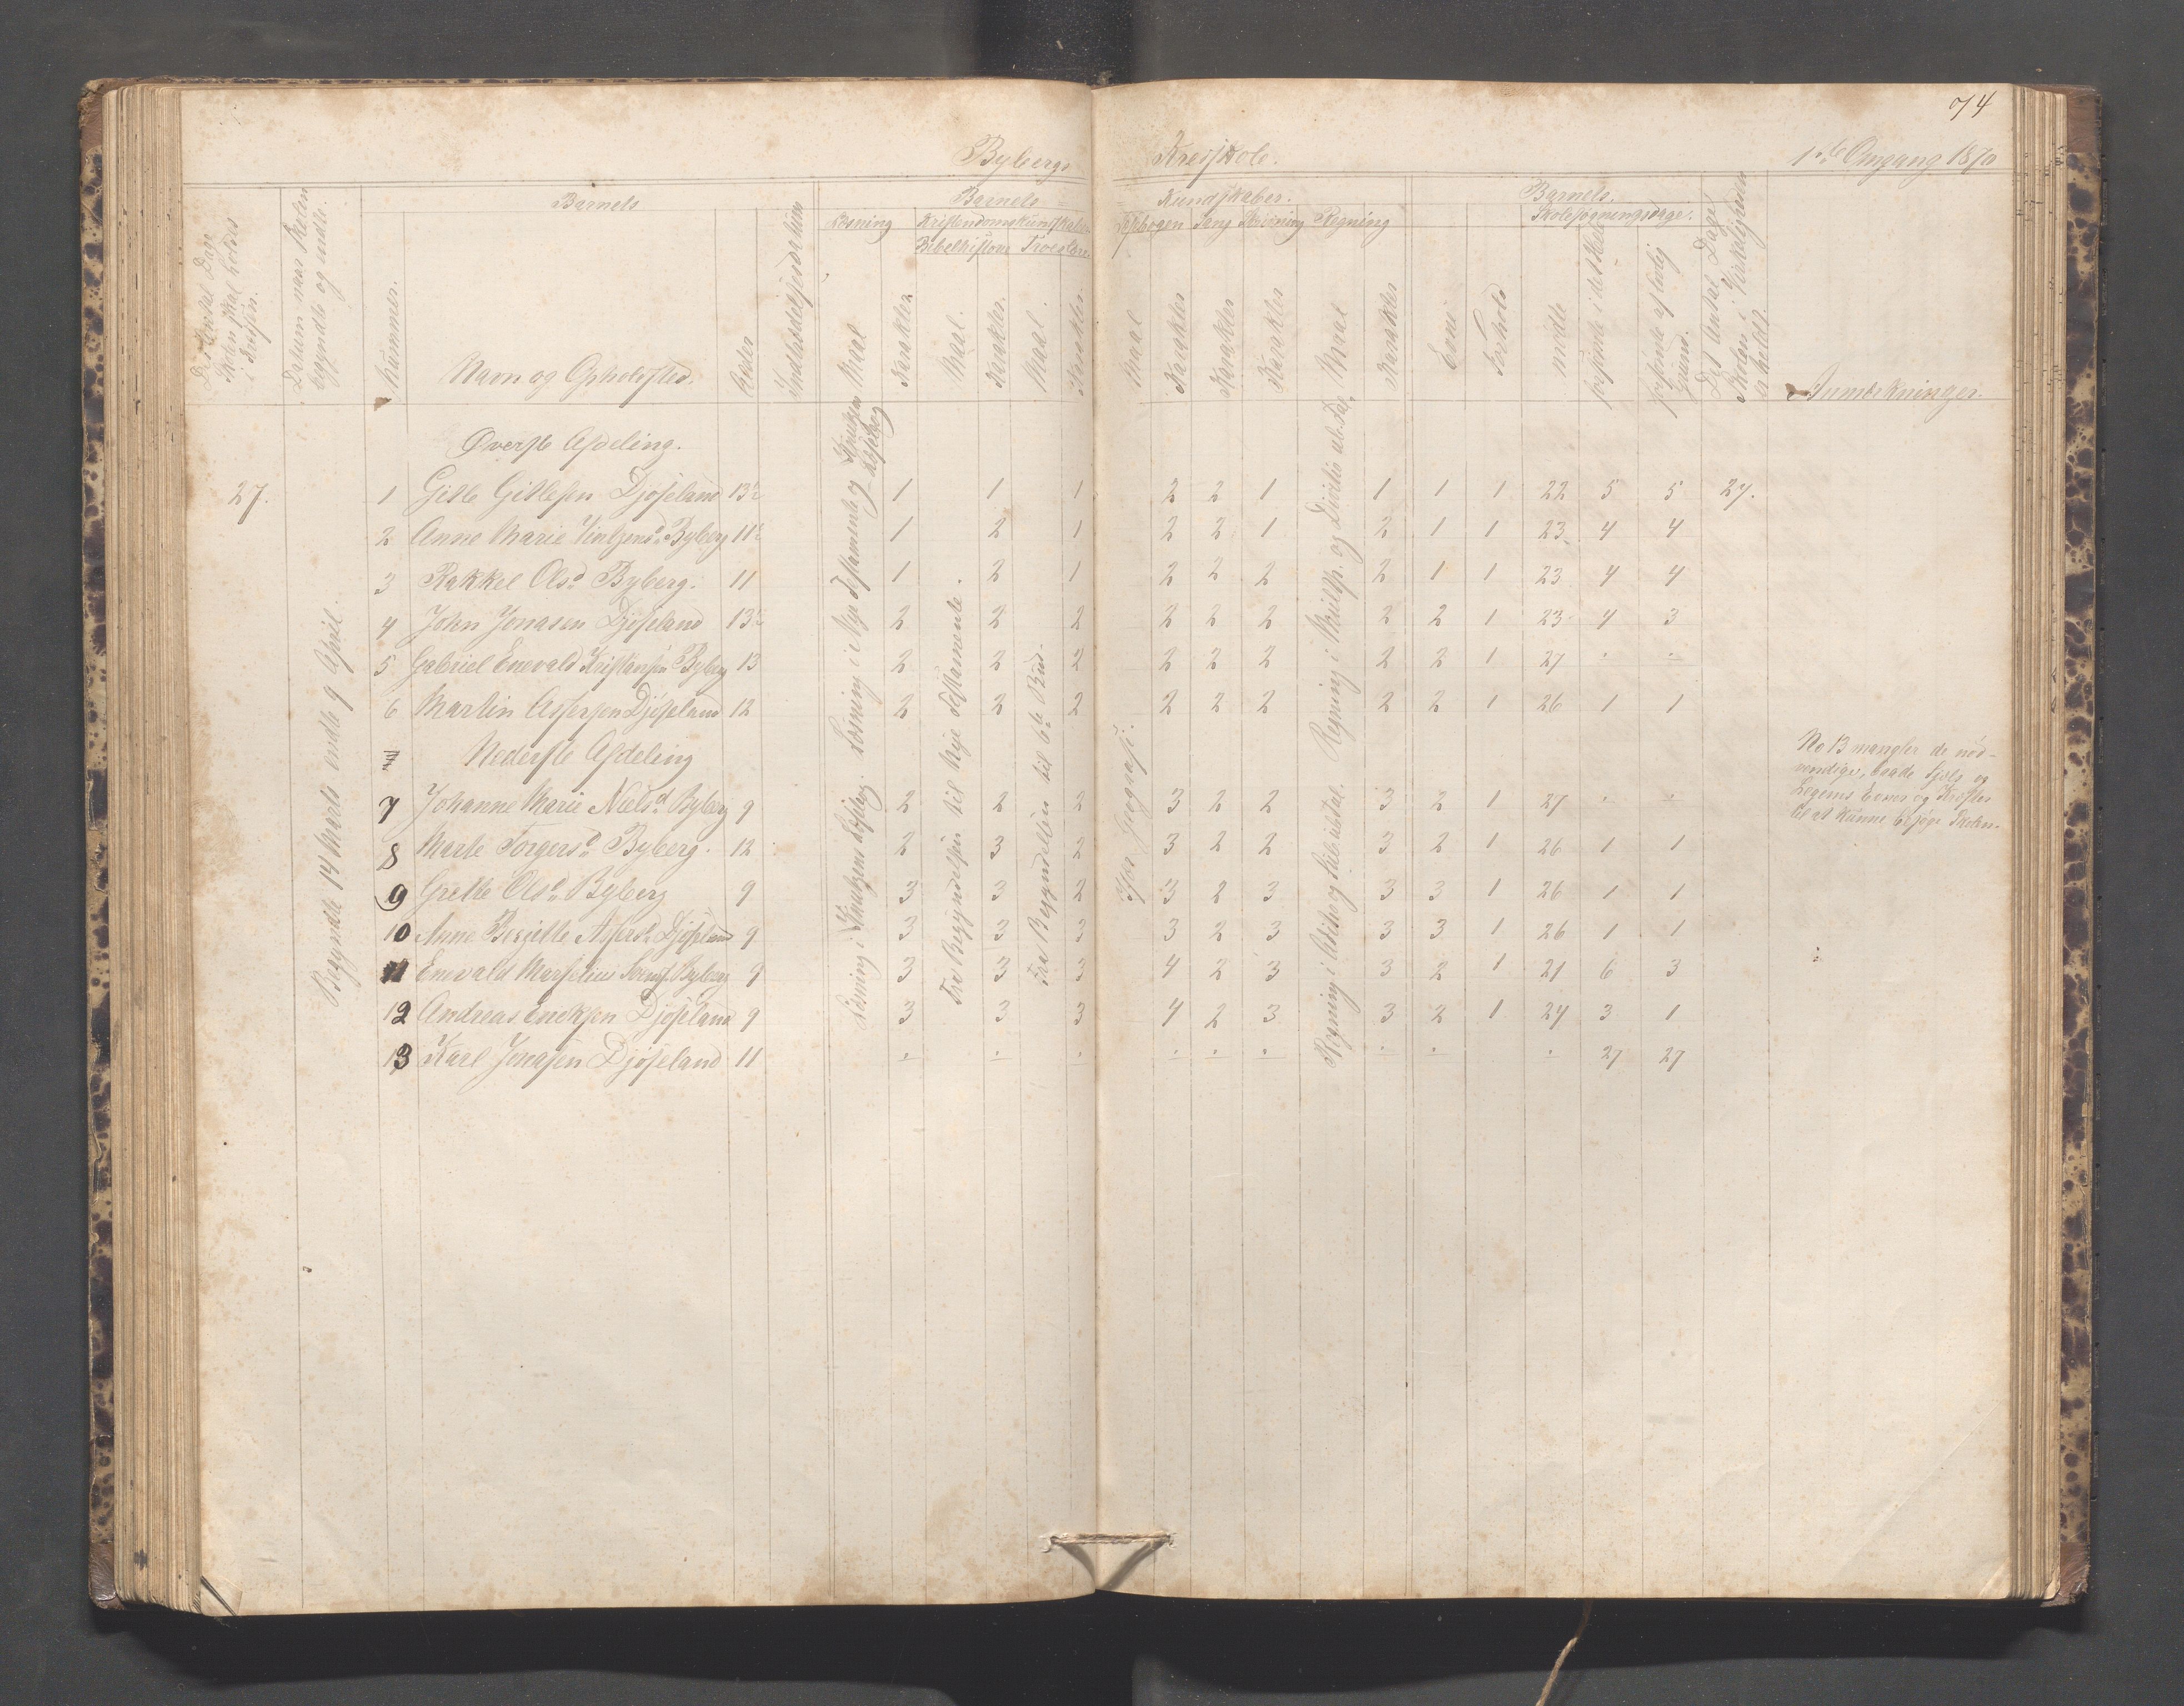 74
Bybergs Kredsskole. 1ste Omgang 1870
Det Antal Dage Skolen skal holdes i Kredsen.
Datum naar Skolen begyndte og endte.
Barnets
Nummer.
Navn og Opholdssted.
Alder
Indtrædelsesdatum
Barnets Kundskaber.
Læsning
Maal
Karakter
Kristendomskundskab
Bibelhistorie
Maal.
Karakter.
Troeslære
Maal.
Karakter.
Læsebogen
Maal
Karakter
Sang
Karakter
Skrivning
Karakter
Regning
Maal
Karakter
Barnets.
Evne
Forhold
Skolesøgningsdage.
mødte
forsømte i det Hele
forsømte af lovlig Grund.
Det Antal Dage Skolen i Virkeligheden er holdt.
Anmærkninger.
Øverste Afdeling.
27.
Begyndte 14 Marts endte 9 April.
Læsning i Nye Testamente og Læsebog
Fra Begyndelsen til Nye Testamente.
Fra Begyndelsen til 6te Bud.
Regning i og Divisio
1 Gitle Gitlesen Djøseland 13½ 1 1 1 2 2 1 1 1 1 22 5 5 27.
2 Anne Marie Byberg 11½ 1 2 1 2 2 1 2 1 1 23 4 4
3 Rakkel Olsd Byberg. 11 1 2 1 2 2 2 2 1 1 23 4 4
4 John Jonasen Djøseland 13½ 2 2 2 2 2 2 2 2 1 23 4 3
5 Gabriel Enevald Kristiansen Byberg 13 2 2 2 2 2 2 2 2 1 27 . .
6 Martin Assersen Djøseland 12 2 2 2 2 2 2 2 2 1 26 1 1
Nederste Afdeling
Læsning i Læsebog.
Regning i Adition og Subtal.
7 Johanne Marie Nielsd Byberg 9 2 2 2 3 2 2 3 2 1 27 . .
8 Marte Torgersd Byberg. 12 2 3 2 3 2 2 3 2 1 26 1 1
9 Grethe Olsd Byberg 9 3 3 2 3 2 3 3 3 1 26 1 1
10 Anne Bergitte Assersd Djøseland 9 3 3 3 3 2 3 3 3 1 26 1 1
11 Enevald Marselius Byberg 9 3 3 3 4 2 3 3 2 1 21 6 3
12 Andreas Eriksen Djøseland 9 3 3 3 4 2 3 3 2 1 24 3 1
13 Karl Jonasen Djøseland 11 . . . . . . . . . 27 27
No 13 mangler de nød-
vendige, baade Sjæls og
Legems Evner og Kræfter
til at kunne besøge Skolen.